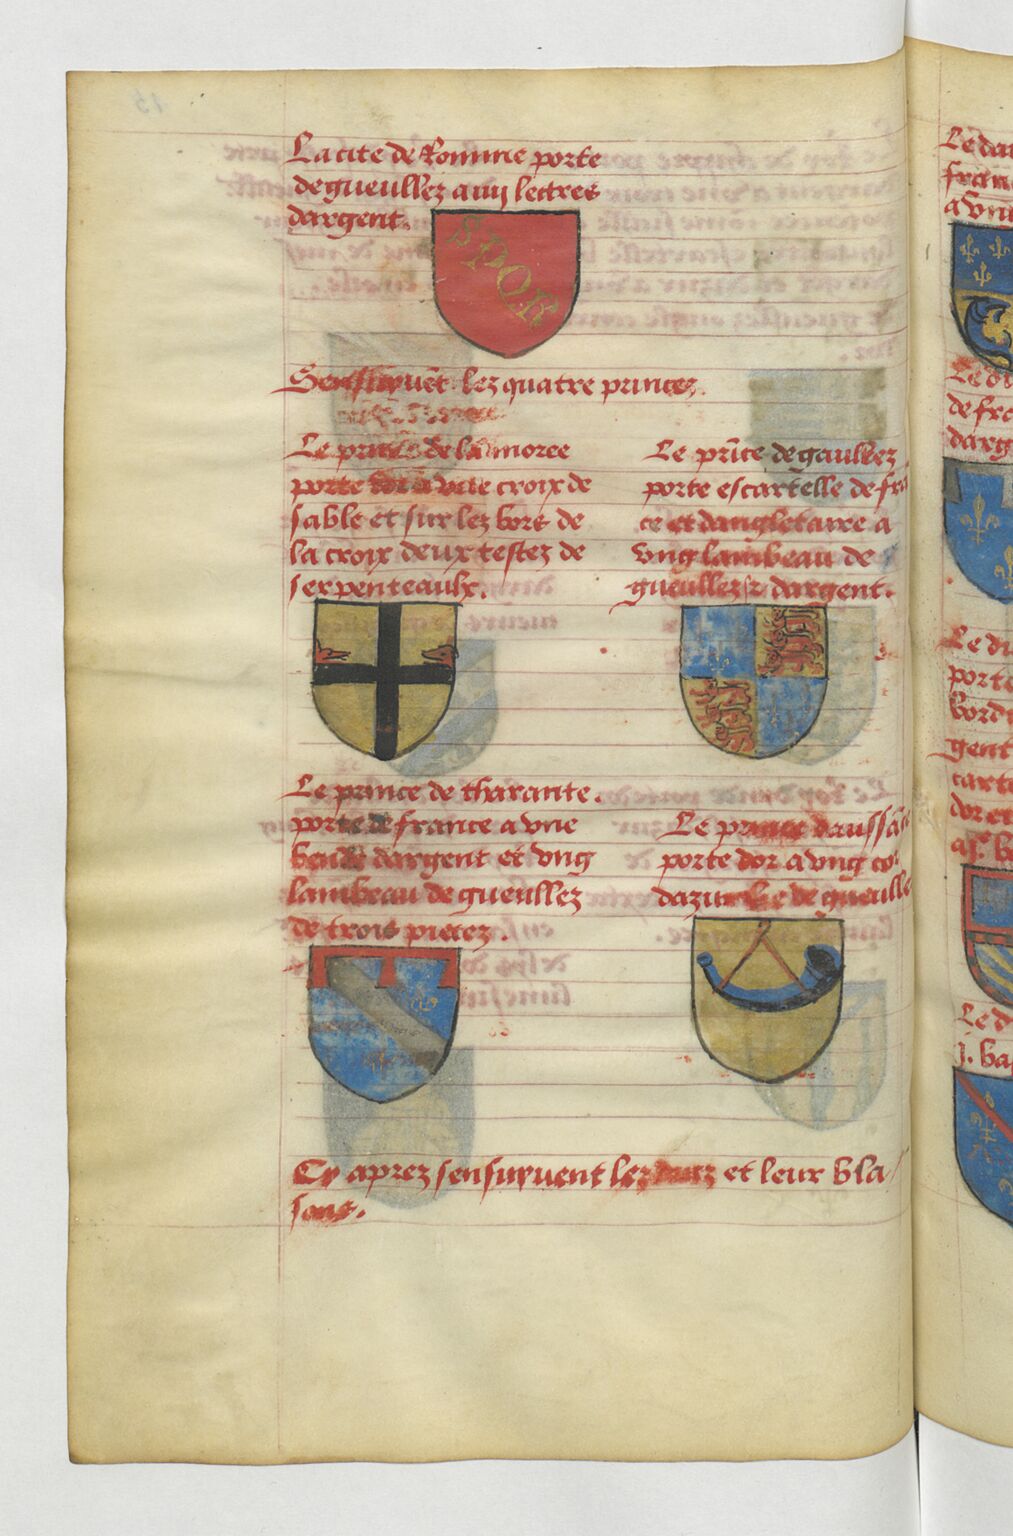 La cite de Romme porte
de gueullez a iiij lectres
dargent.
SPQR
Sensuyuēt lez quatre princez.
Le prince de la moree
porte dor a vne croix de
sable et sur lez bors de
la croix deux testez de
serpenteaulx.
Le prīce de gaullez
porte escartelle de frā
ce et dangletaire a
vng lambeau de
gueullez dargent.
Le prince de tharante.
porte de france a vne
bende dargent et vng
lambeau de gueullez
de trois piecez.
Le prince daussā
porte dor a vng cor
dazur de gueulle
Cy aprez sensuyuent lez ducz et leur bla
sons.
Le
fran
a vn
Le
de fra
darg
Le du
porte
bord
gent
carte
dor et
Le d
j. ba